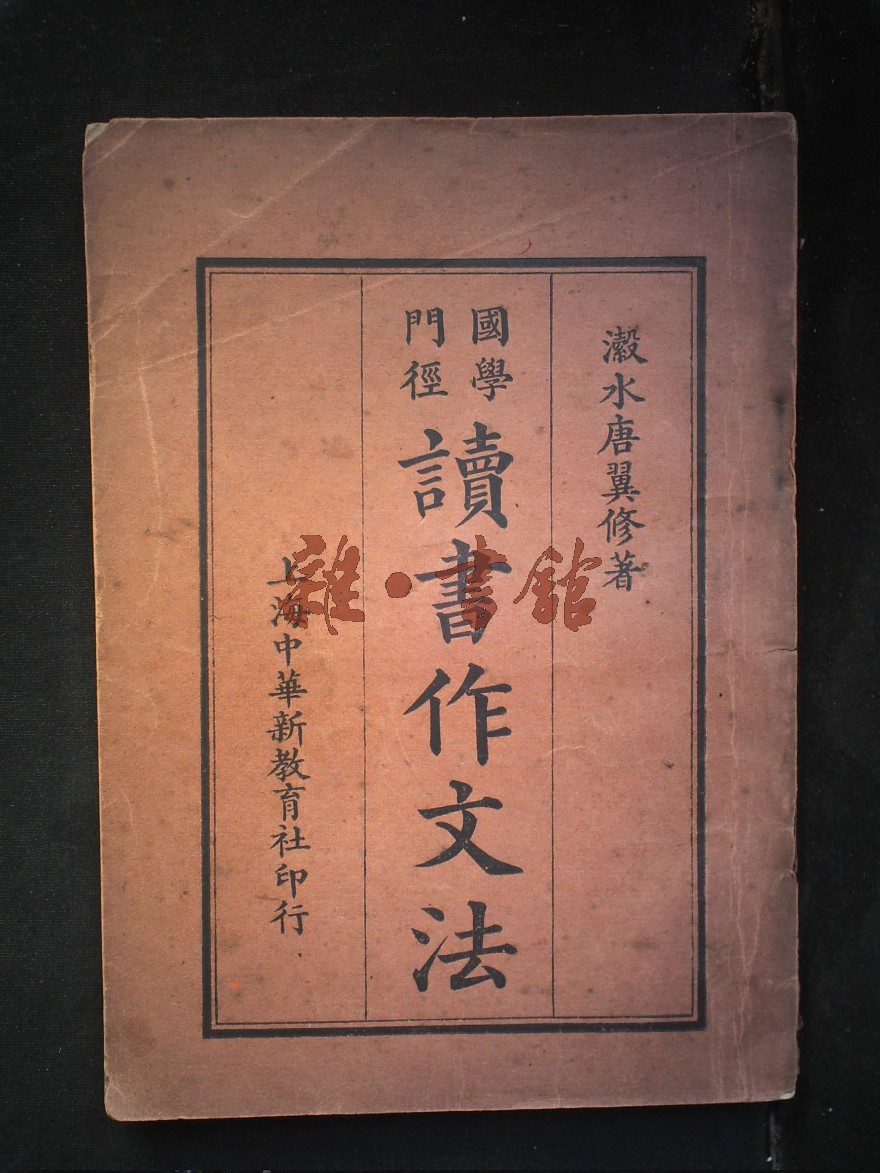 瀔水唐翼修著
國學
門徑
讀書作文法
上海中華新教育社印行
雜·書館